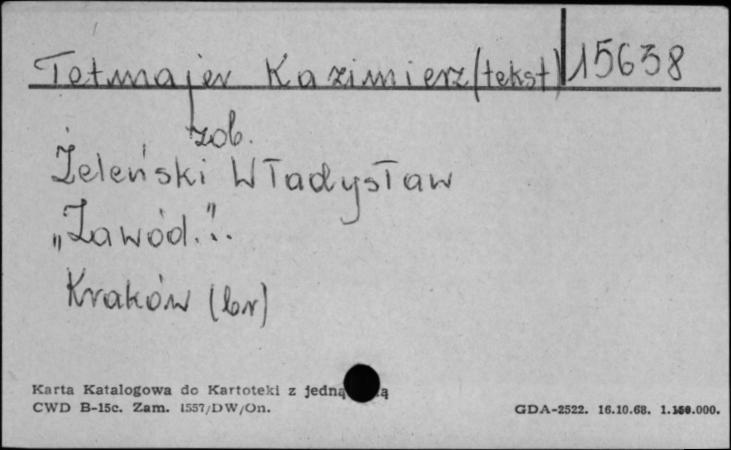 Tetmajer Kazimierz (tekst) 15638
zob.
Żeleński Władysław
„Zawód.".
Kraków (br)
Karta Katalogowa do Kartoteki z jedną
CWD B-15c. Zam. 1557/DW/On.
GDA-2522. 16.10.68. 1.150.000.